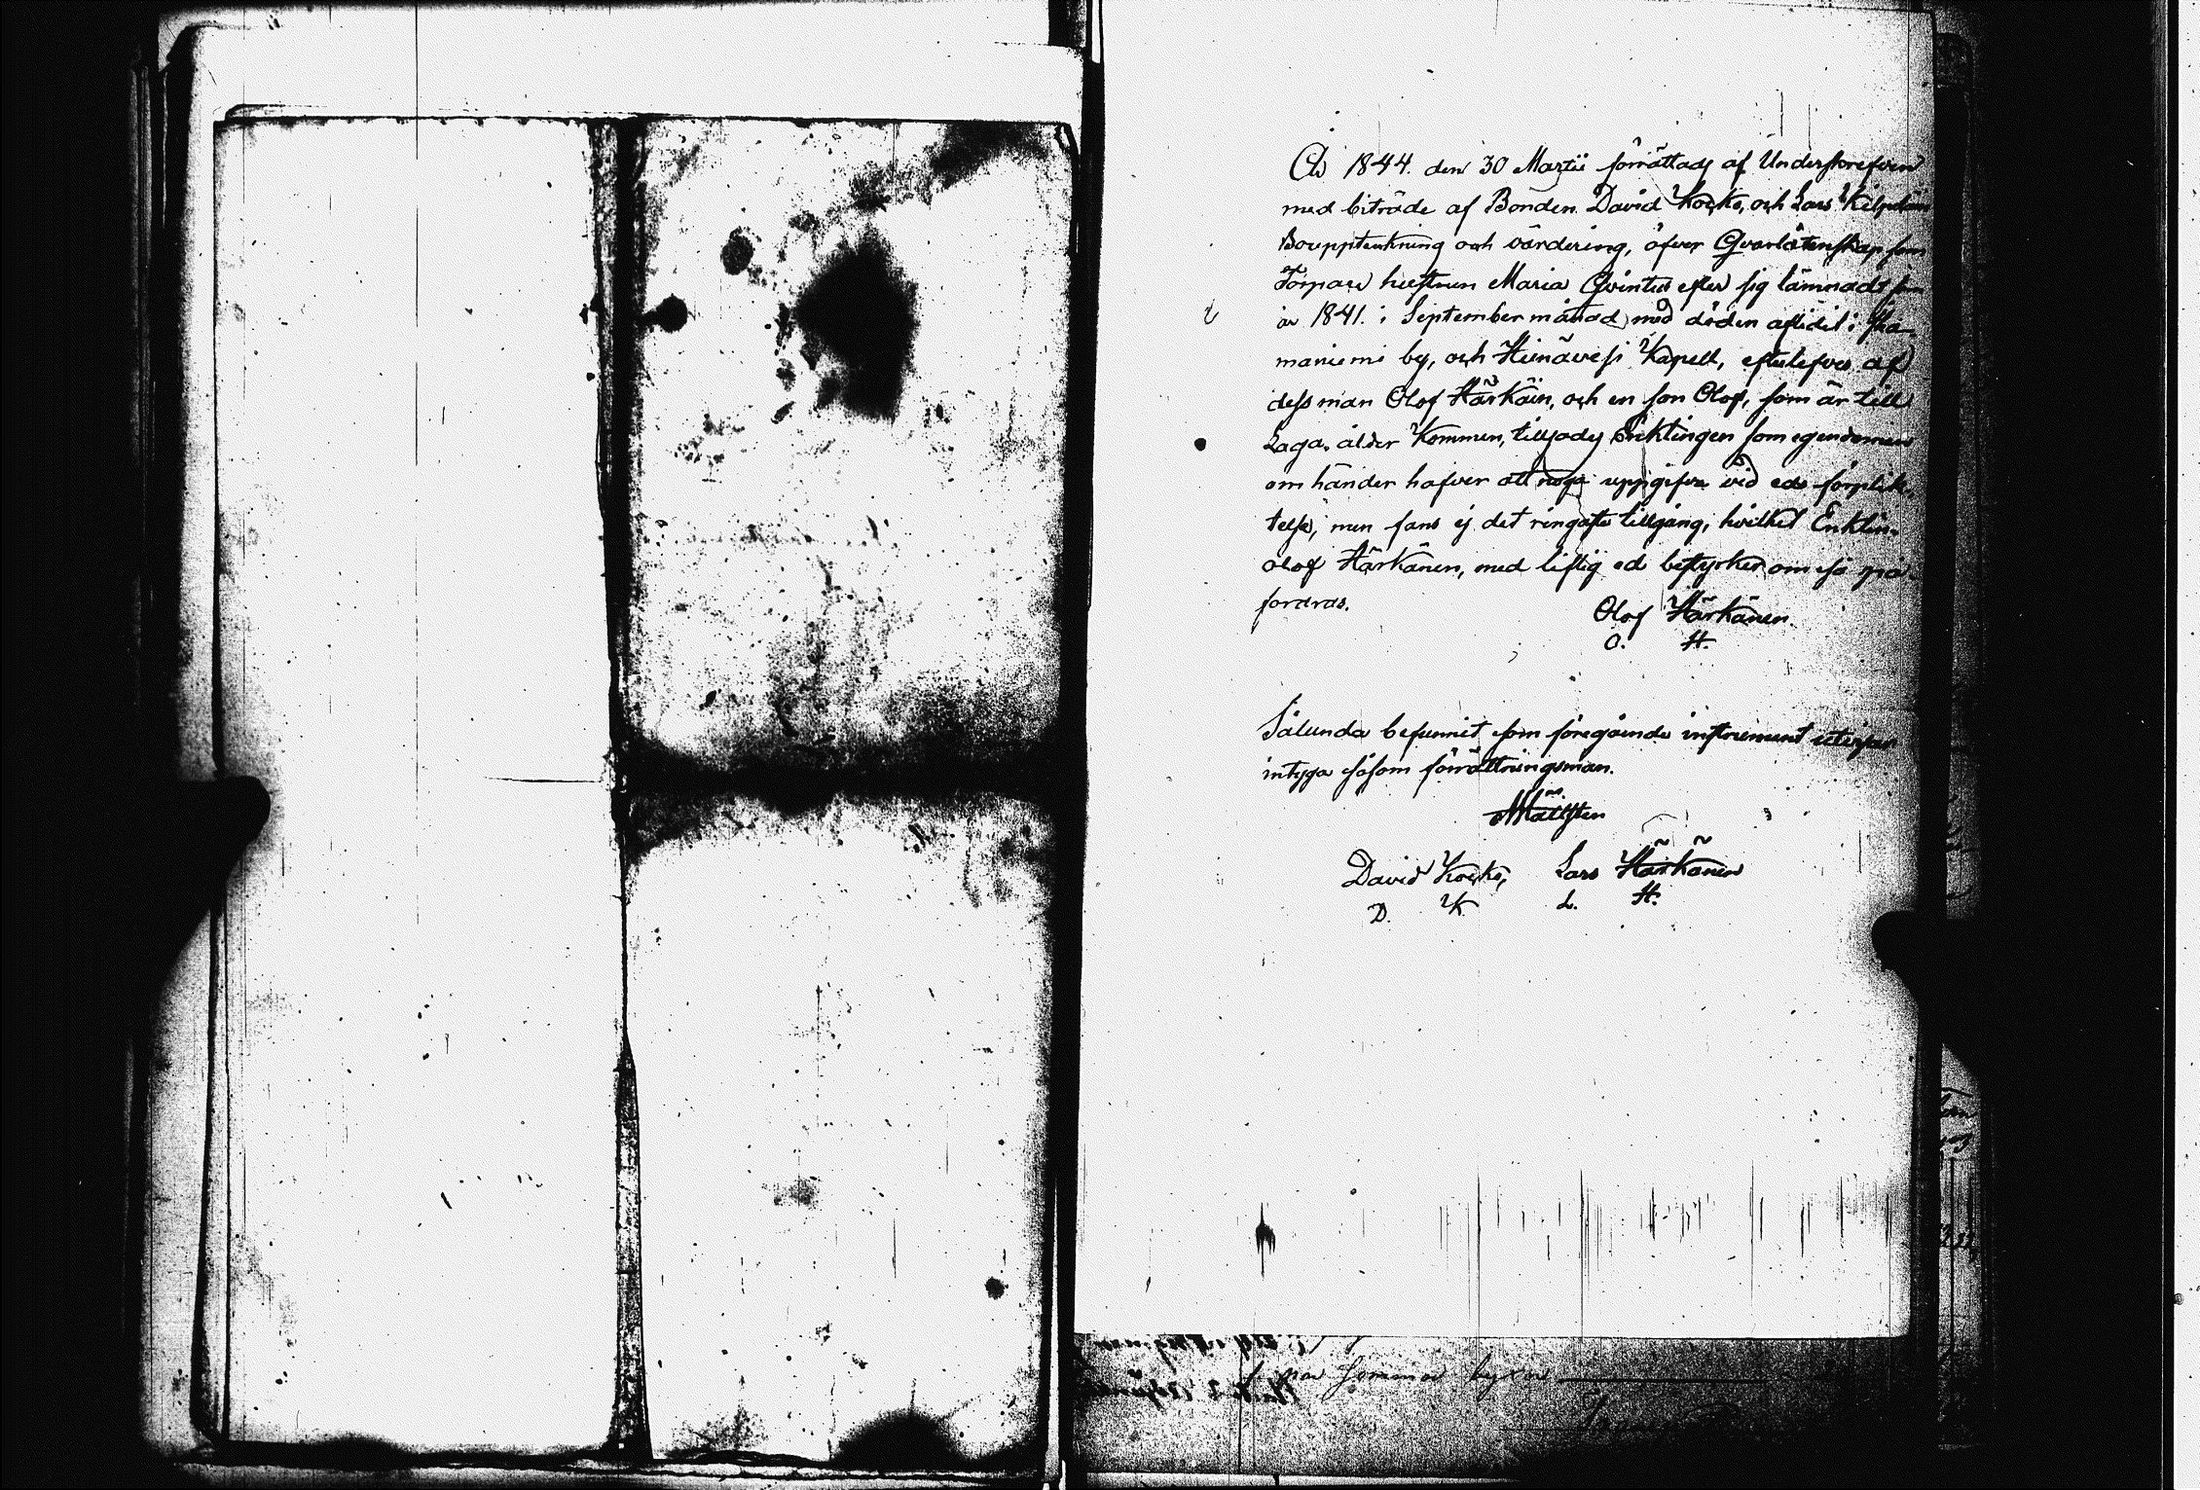 År 1844. den 30 Martii förrättads af Underskrefven
med biträde af Bonden David Kocko, och Lars
Bouppteckning och värdering, öfver Qvarlåtenskap som
Torpare hustrun Maria Qvintus efter sig lämnadt som
år 1841. i September månad med döden aflidit i Iha-
maniemi by, och Heinävesi Kapell, efterlefves af
dess man Olof Härkäin, och en son Olof, som är till
Laga ålder Kommen, tillsades Enklingen som egendomen
om händer hafver att noga uppgifva vid eds förplik-
telse, men fans ej det ringaste tillgång, hvilket Enklin-
Olof Härkänen, med liflig ed bestyrker om så på-
fordras.
Olof Härkänen
O. H.
Sålunda befunnit som föregående instrument utvisar
intyga såsom förrättningsman.
David Kocko, Lars Härkänen
D. K. L. H.